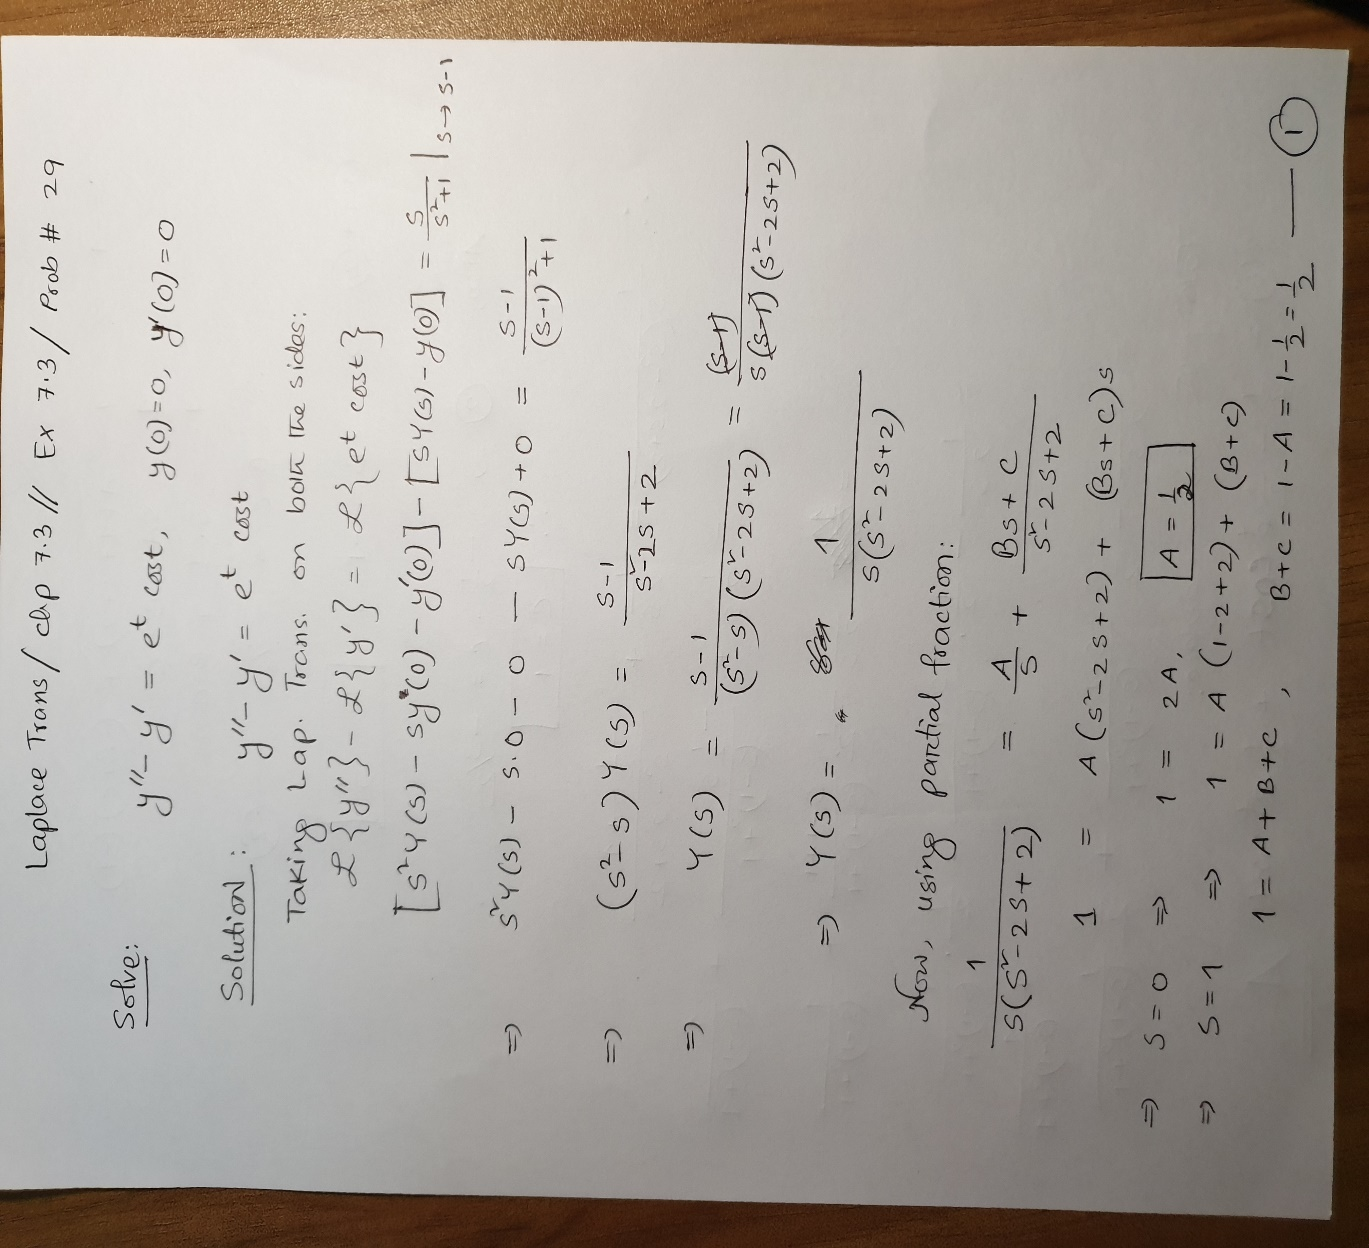 Laplace Trans / chp 7.3 // Ex 7.3 / Prob # 29
Solve: y'' - y' = e^t cost, y(0)=0, y'(0)=0
Solution: y'' - y' = e^t cost
Taking Lap. Trans. on both the sides:
ℒ{y''} - ℒ{y'} = ℒ{e^t cost}
[s²Y(s) - sy(0) - y'(0)] - [sY(s) - y(0)] = s/(s²+1) |s→s-1
⇒ s²Y(s) - s.0 - 0 - sY(s) + 0 = (s-1)/((s-1)²+1)
⇒ (s²-s) Y(s) = (s-1)/(s²-2s+2)
⇒ Y(s) = (s-1)/((s²-s)(s²-2s+2)) = (s-1)/(s(s-1)(s²-2s+2))
⇒ Y(s) = 1/(s(s²-2s+2))
Now, using partial fraction:
1/(s(s²-2s+2)) = A/s + (Bs+C)/(s²-2s+2)
1 = A(s²-2s+2) + (Bs+C)s
⇒ s=0 ⇒ 1 = 2A, A = 1/2
⇒ s=1 ⇒ 1 = A(1-2+2) + (B+C)
1 = A+B+C, B+C = 1-A = 1-1/2 = 1/2 — ①